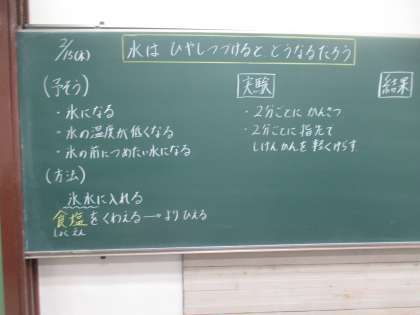 2/15(木)
水は ひやしつづけると、どうなるだろう
(予そう)
・氷になる
・水の温度が低くなる
・氷の前につめたい水になる
(方法)
氷水に入れる
食塩をくわえる→よりひえる
しょくえん
実験
・2分ごとに かんさつ
・2分ごとに 指先で
しけんかんを軽くゆらす
結果